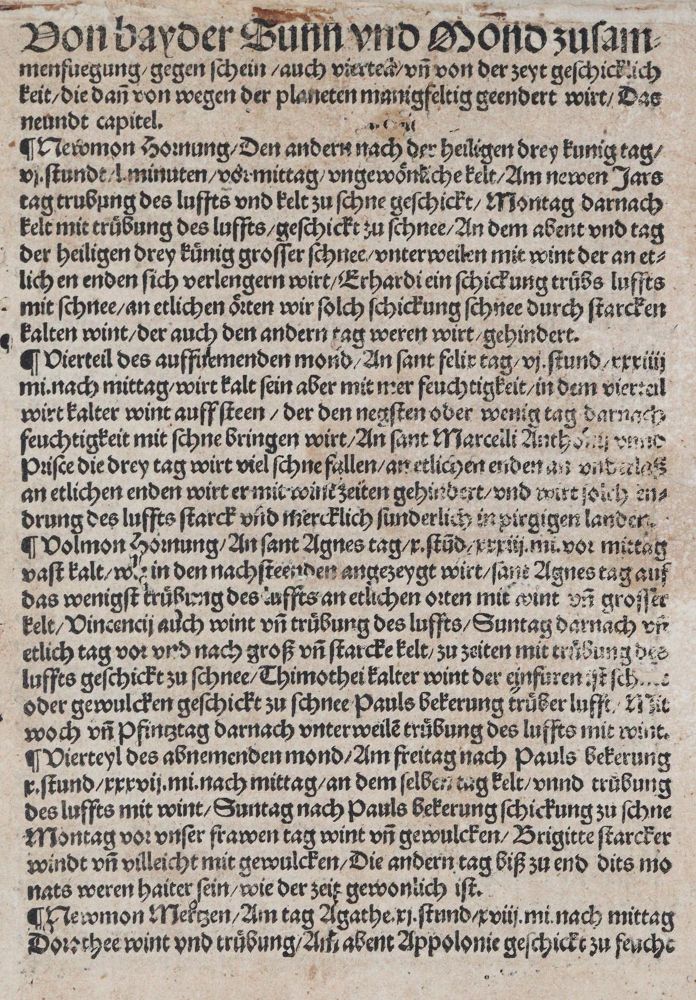 Von bayder Sunn vnd Mond zusam-
menfuegung/gegen schein/auch viertea/vñ von der zeyt geschicklich
keit/die dañ von wegen der planeten manigfeltig geendert wirt/Das
neundt capitel.
¶ Newmon Hornung/Den andern nach der heiligen drey kunig tag/
vj.stundt/l.minuten/vor mittag/vngewönliche kelt/Am newen Jars
tag trubung des luffts vnd kelt zu schne geschickt/Montag darnach
kelt mit trübung des luffts/geschickt zu schnee/An dem abent vnd tag
der heiligen drey künig grosser schnee/vnterweilen mit wint der an et-
lichen enden sich verlengern wirt/Erhardi ein schickung trübs luffts
mit schnee/an etlichen örten wir solch schickung schnee durch starcken
kalten wint/der auch den andern tag weren wirt/gehindert.
¶ Vierteil des auffnemenden mond/An sant felix tag/vj.stund/xxxiiij
mi.nach mittag/wirt kalt sein aber mit mer feuchtigkeit/in dem vierteil
wirt kalter wint auff steen/der den negsten oder wenig tag darnach
feuchtigkeit mit schne bringen wirt/An sant Marcelli Anthonij vnnd
Prisce die drey tag wirt viel schne fallen/an etlichen enden an vnderlaß
an etlichen enden wirt er mit wint zeiten gehindert/vnd wirt solch en-
drung des luffts starck vnd mercklich sunderlich in pirgigen landen.
¶ Volmon Hornung/An sant Agnes tag/x.stũd/xxxiij.mi.vor mittag
vast kalt/wie in den nachsteenden angezeygt wirt/sant Agnes tag auf
das wenigst trübung des luffts an etlichen orten mit wint vñ grosser
kelt/Vincencij auch wint vñ trübung des luffts/Suntag darnach vñ
etlich tag vor vnd nach groß vñ starcke kelt/zu zeiten mit trübung des
luffts geschickt zu schnee/Thimothei kalter wint der einfüren ist
oder gewulcken geschickt zu schnee Pauls bekerung trüber lufft/Mit
woch vñ Pfintztag darnach vnterweilẽ trübung des luffts mit wint.
¶ Vierteyl des abnemenden mond/Am freitag nach Pauls bekerung
x.stund/xxxvij.mi.nach mittag/an dem selben tag kelt/vnnd trübung
des luffts mit wint/Suntag nach Pauls bekerung schickung zu schne
Montag vor vnser frawen tag wint vñ gewulcken/Brigitte starcker
windt vñ villeicht mit gewulcken/Die andern tag biß zu end dits mo
nats weren haiter sein/wie der zeit gewonlich ist.
¶ Newmon Mertzen/Am tag Agathe.xj.stund/xviij.mi.nach mittag
Dorothee wint vnd trübung/Am abent Appolonie geschickt zu feucht